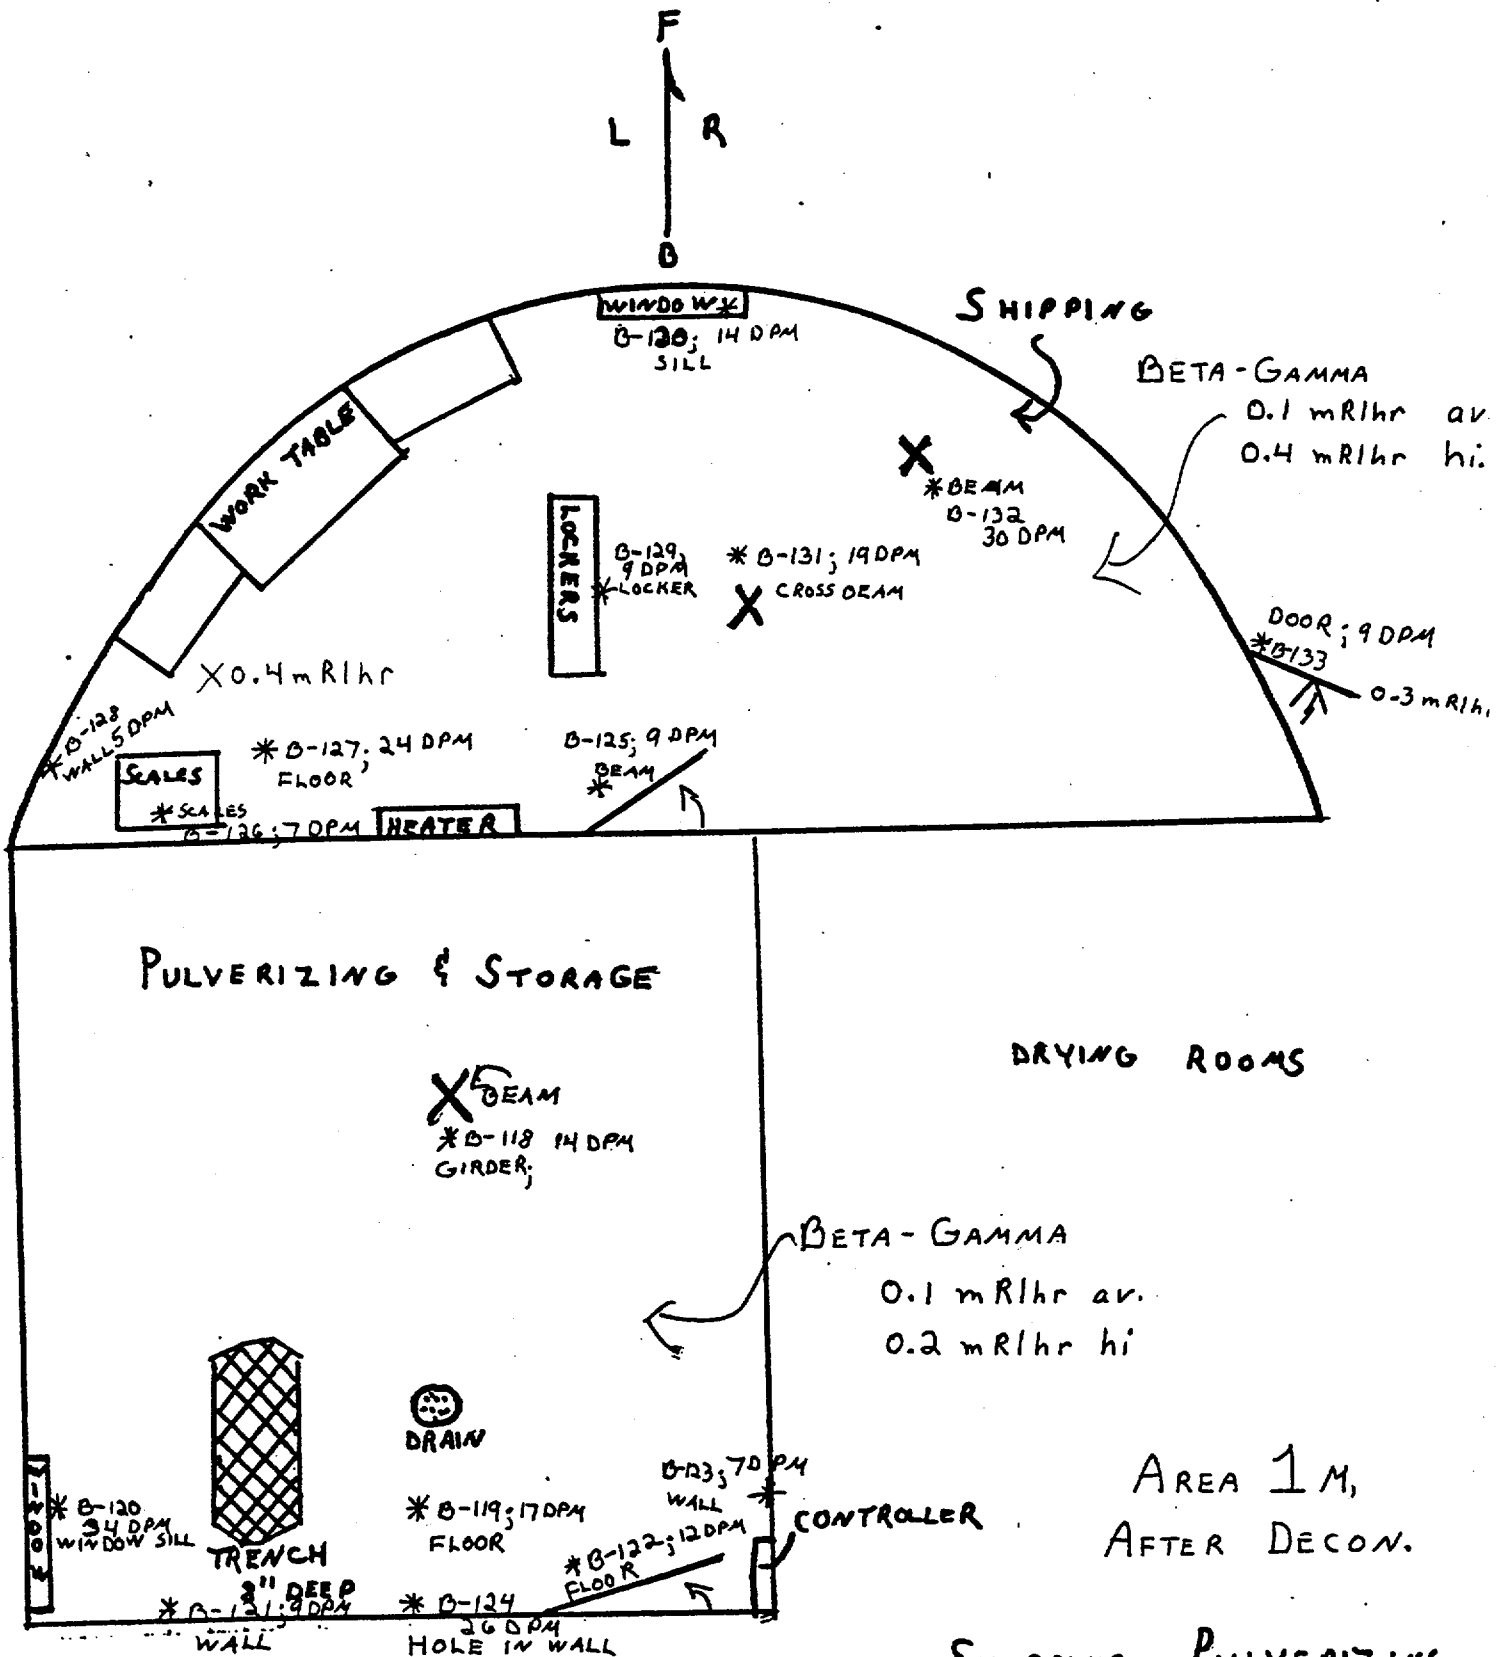 F
L R
B
WINDOW *
B-130; 14 DPM
SILL
SHIPPING
BETA-GAMMA
0.1 mR/hr av.
0.4 mR/hr hi.
WORK TABLE
X
* BEAM
B-132
30 DPM
LOCKERS
B-129,
9 DPM
* LOCKER
* B-131; 19 DPM
X CROSS BEAM
DOOR; 9 DPM
* B-133
0.3 mR/h
X 0.4 mR/hr
* B-128
WALL 5 DPM
SCALES
* SCALES
B-126; 7 DPM
* B-127; 24 DPM
FLOOR
HEATER
B-125; 9 DPM
BEAM
*
PULVERIZING & STORAGE
DRYING ROOMS
X BEAM
* B-118 14 DPM
GIRDER;
BETA-GAMMA
0.1 mR/hr av.
0.2 mR/hr hi
DRAIN
WINDOW
* B-120
34 DPM
WINDOW SILL
TRENCH
DEEP
* B-121; 9 DPM
WALL
* B-119; 17 DPM
FLOOR
* B-124
26 DPM
HOLE IN WALL
B-123; 7 DPM
WALL
*
* B-122; 12 DPM
FLOOR
CONTROLLER
AREA 1M,
AFTER DECON.